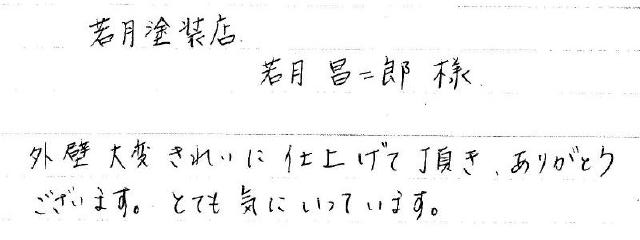 若月塗装店
若月昌二郎様
外壁大変きれいに仕上げて頂き、ありがとう
ございます。とても気にいっています。